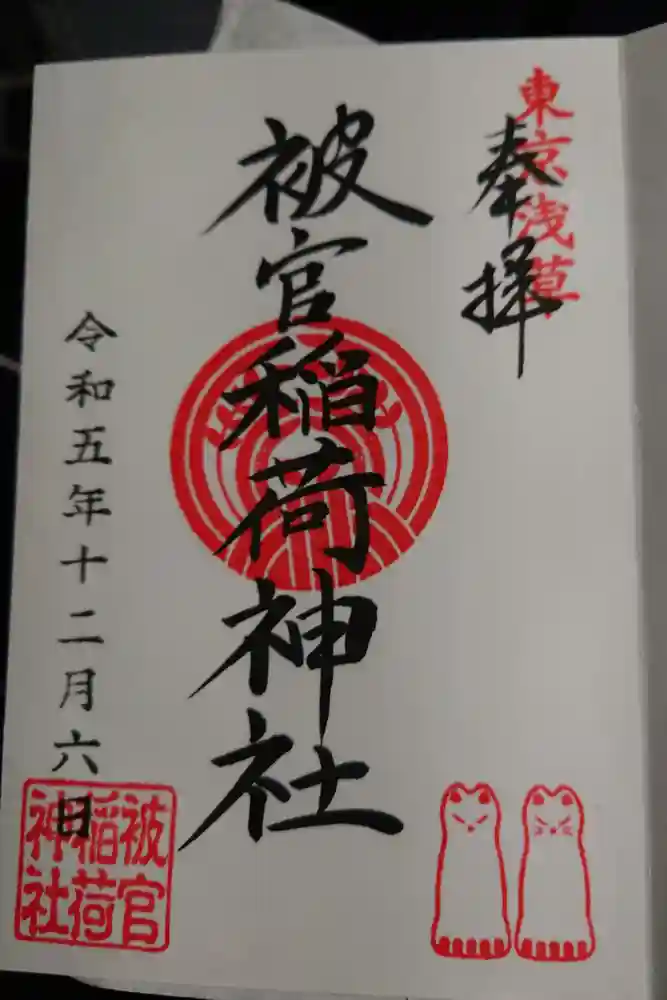 東京浅草
奉拝
被官稲荷神社
令和五年十二月六日
被官
稲荷
神社